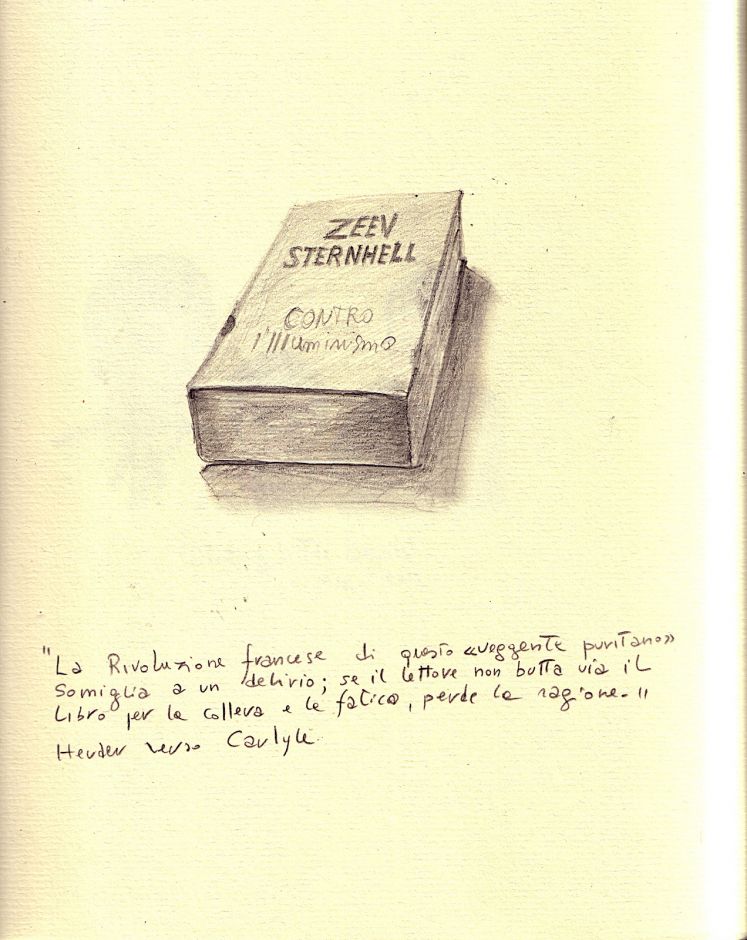 ZEEV
STERNHELL
CONTRO
l'Illuminismo
"La Rivoluzione francese di questo «veggente puritano»
somiglia a un delirio; se il lettore non butta via il
libro per la collera e la fatica, perde la ragione."
Herder verso Carlyle